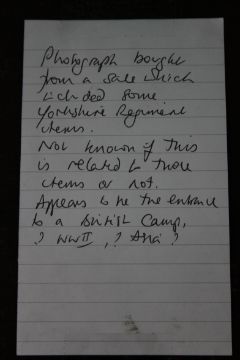 Photograph bought
from a sale which
included some
Yorkshire Regiment
items.
Not known if this
is related to those
items or not.
Appears to be the entrance
to a British Camp,
? WWII, ? Asia ?